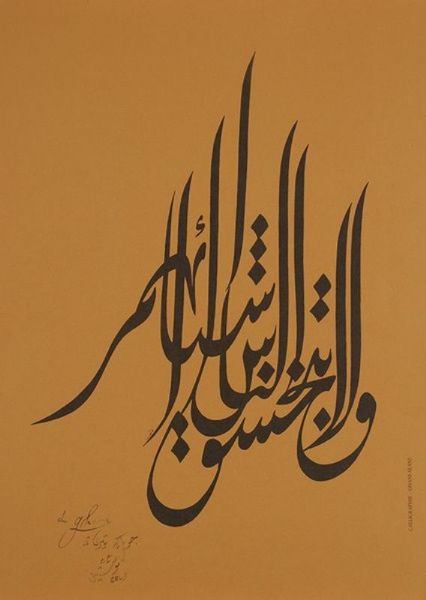 ولا تبخسوا الناس اشيائهم
CALLIGRAPHIE : GHANI ALANI